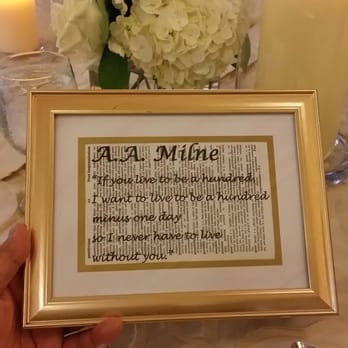 A.A. Milne
"If you live to be a hundred,
I want to live to be a hundred
minus one day
so I never have to live
without you."